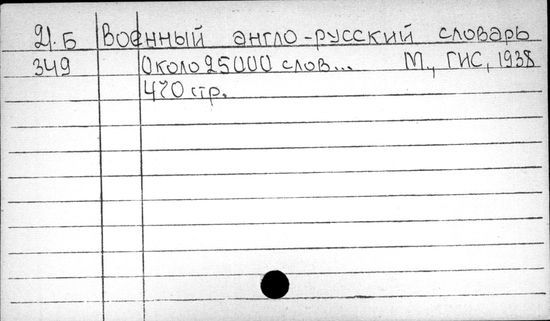 21.Б Военный англо-русский словарь
349 Около 25000 слов... М., ГИС, 1938
470 стр.